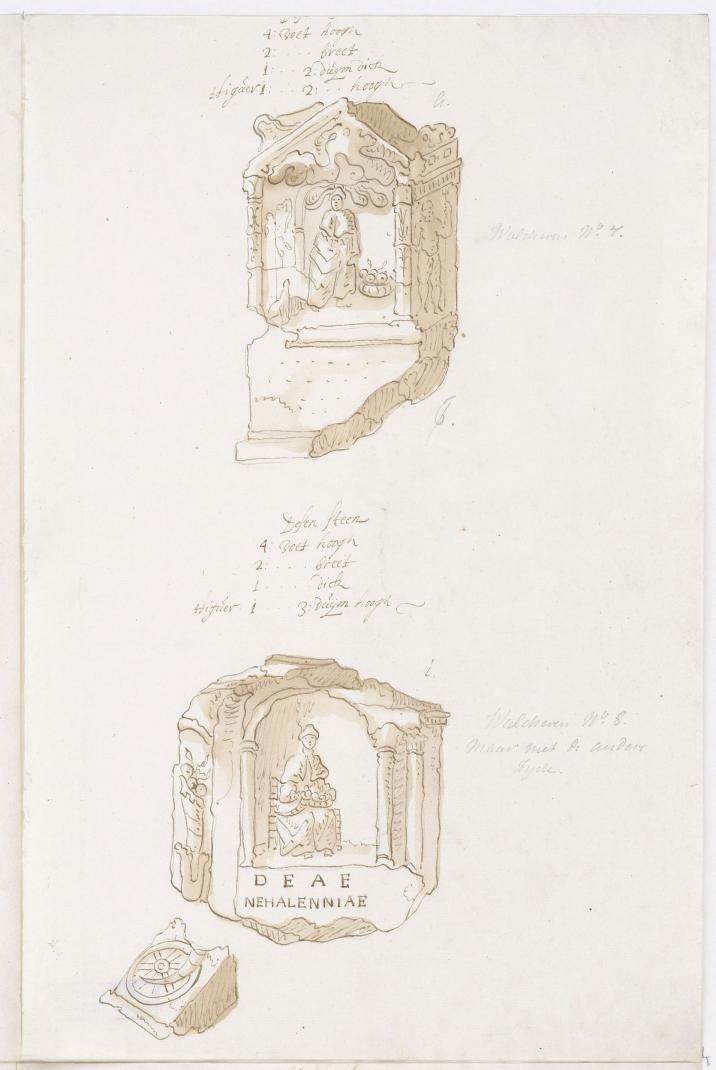 4: Voet hoogh
2: . . . breet
1: . . 2: duijm dick
1: . . 2: . . hoogh
h.
Walcheren No. 7.
Desen Steen
4: Voet hoogh
2: . . . breet
1 . . . dick
1 3: duijm hoogh
i.
Walcheren No. 8.
Maar met de andere
Zyde.
DEAE
NEHALENNIAE